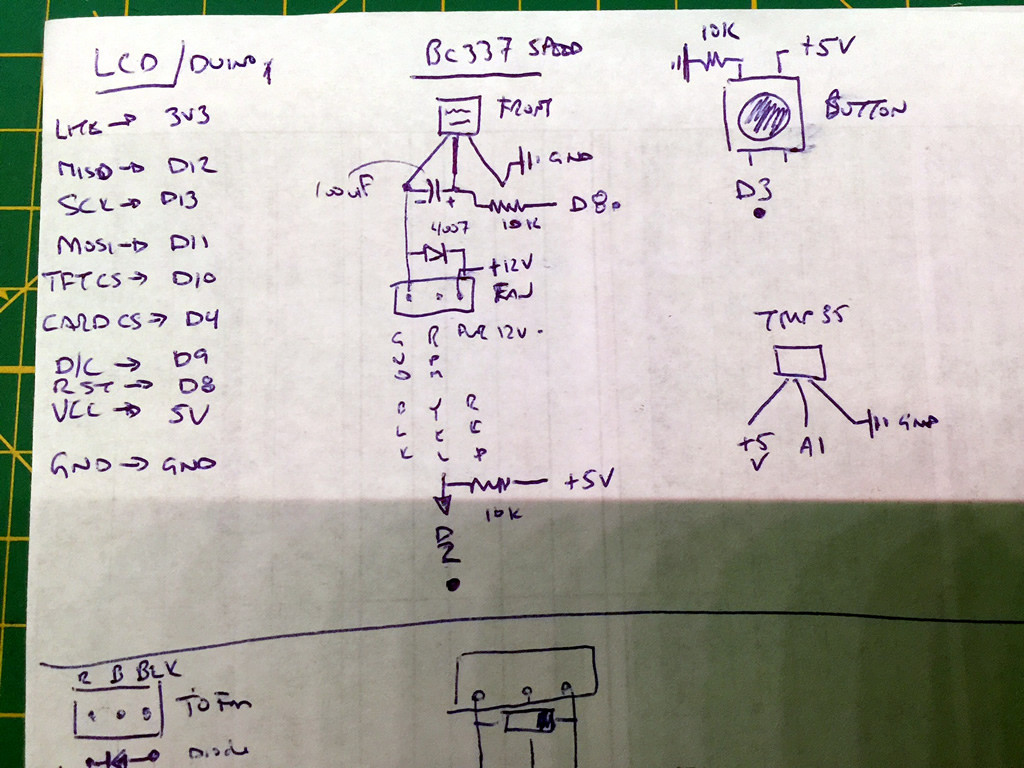 LCD/DUINO
LITE → 3V3
MISO → D12
SCK → D13
MOSI → D11
TFTCS → D10
CARDCS → D4
D/C → D9
RST → D8
VCC → 5V
GND → GND
BC337 SPEED
FRONT
GND
100uF
- +
10K
D8.
4007
+12V
FAN
G R PWR 12V.
N P
D M
B Y R
L E E
K L D
10K
+5V
D
2
10K
+5V
BUTTON
D3
TMP35
+5
V
A1
GND
R B BLK
TO Fan
Diode